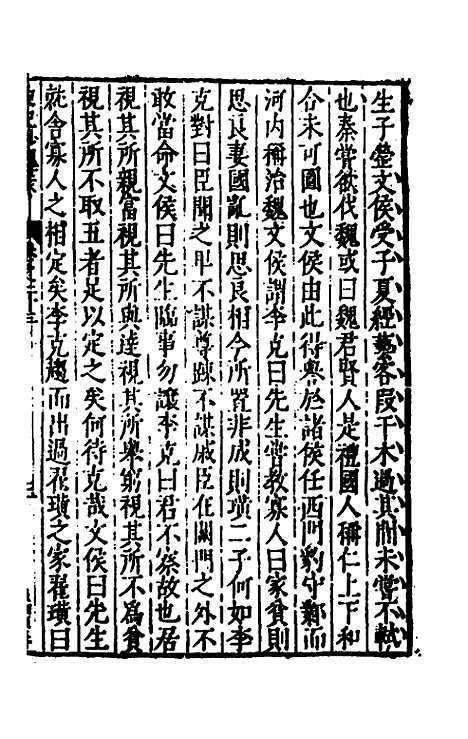 生子罃文侯受子夏經藝客段干木過其閭未嘗不軾
也秦嘗欲伐魏或曰魏君賢人是禮國人稱仁上下和
合未可圖也文侯由此得譽於諸侯任西門豹守鄴而
河內稱治魏文侯謂李克曰先生嘗教寡人曰家貧則
思良妻國亂則思良相今所置非成則璜二子何如李
克對曰臣聞之卑不謀尊踈不謀戚臣在闕門之外不
敢當命文侯曰先生臨事勿讓李克曰君不察故也居
視其所親富視其所與達視其所舉窮視其所不爲貧
視其所不取五者足以定之矣何待克哉文侯曰先生
就舍寡人之相定矣李克趨而出過翟璜之家翟璜曰